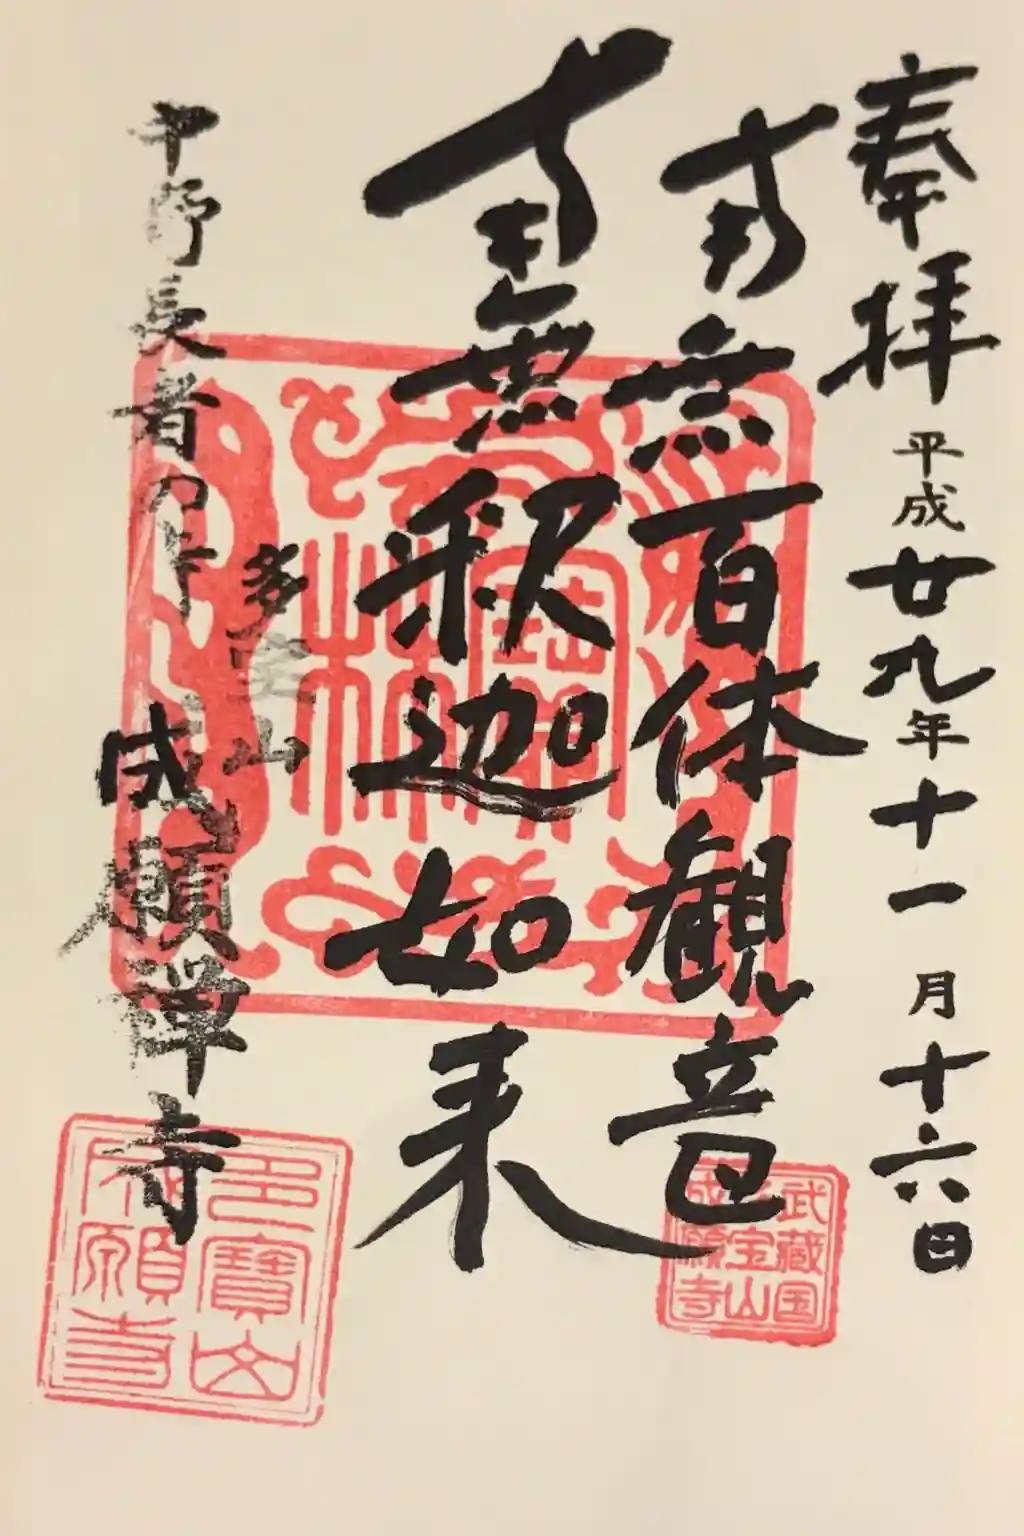 奉拝
平成廿九年十一月十六日
南無百体観音
南無釈迦如来
多宝山
中野長者の寺
成願禅寺
武蔵国
多宝山
成願寺
多寶山
成願寺